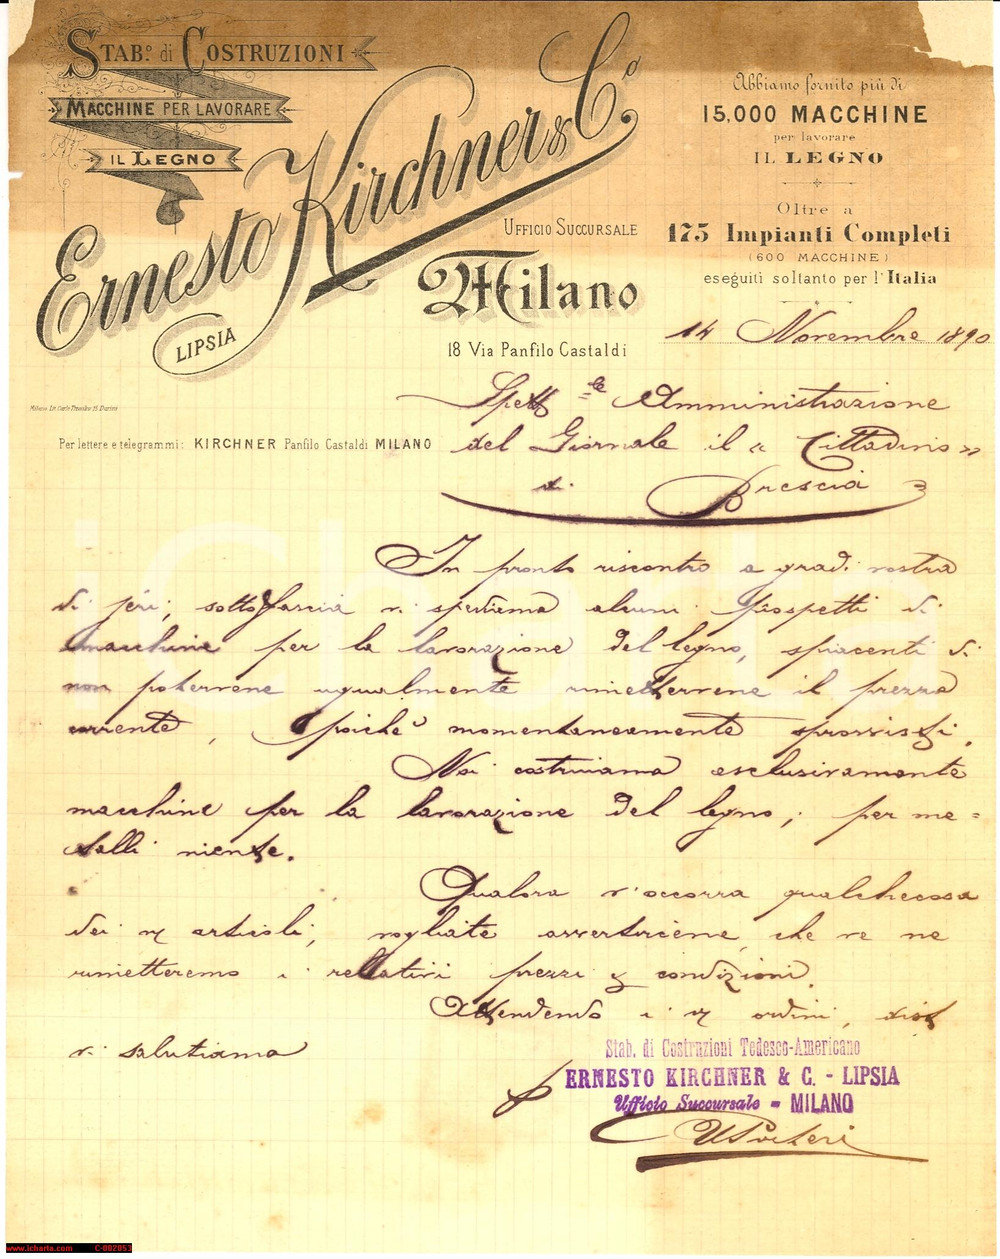 Stabº. di Costruzioni
Macchine per lavorare
il Legno
Ernesto Kirchner & Cº
Lipsia
Abbiamo fornito più di
15,000 MACCHINE
per lavorare
IL LEGNO
Oltre a
175 Impianti Completi
(600 MACCHINE)
eseguiti soltanto per l'Italia
Ufficio Succursale
Milano
18 Via Panfilo Castaldi
14 Novembre 1890
Spett.le Amministrazione
del Giornale il « Cittadino »
di Brescia
Per lettere e telegrammi: KIRCHNER Panfilo Castaldi MILANO
In pronto riscontro a gradi. vostra
di jeri, sotto fascia vi spediamo alcuni prospetti di
macchine per la lavorazione del legno, spiacenti di
non potervene ugualmente rimettervene il prezzo
corrente, poichè momentaneamente sprovvisti.
Noi costruiamo esclusivamente
macchine per la lavorazione del legno; per me=
talli niente.
Qualora v'occorra qualchecosa
dei articoli, vogliate avvertircene, che ve ne
rimetteremo i relativi prezzi & condizioni.
Attendendo i ordini,
vi salutiamo
Stab. di Costruzioni Tedesco-Americano
ERNESTO KIRCHNER & C. - LIPSIA
Ufficio Succursale = MILANO
iCharta
www.icharta.com C-092053